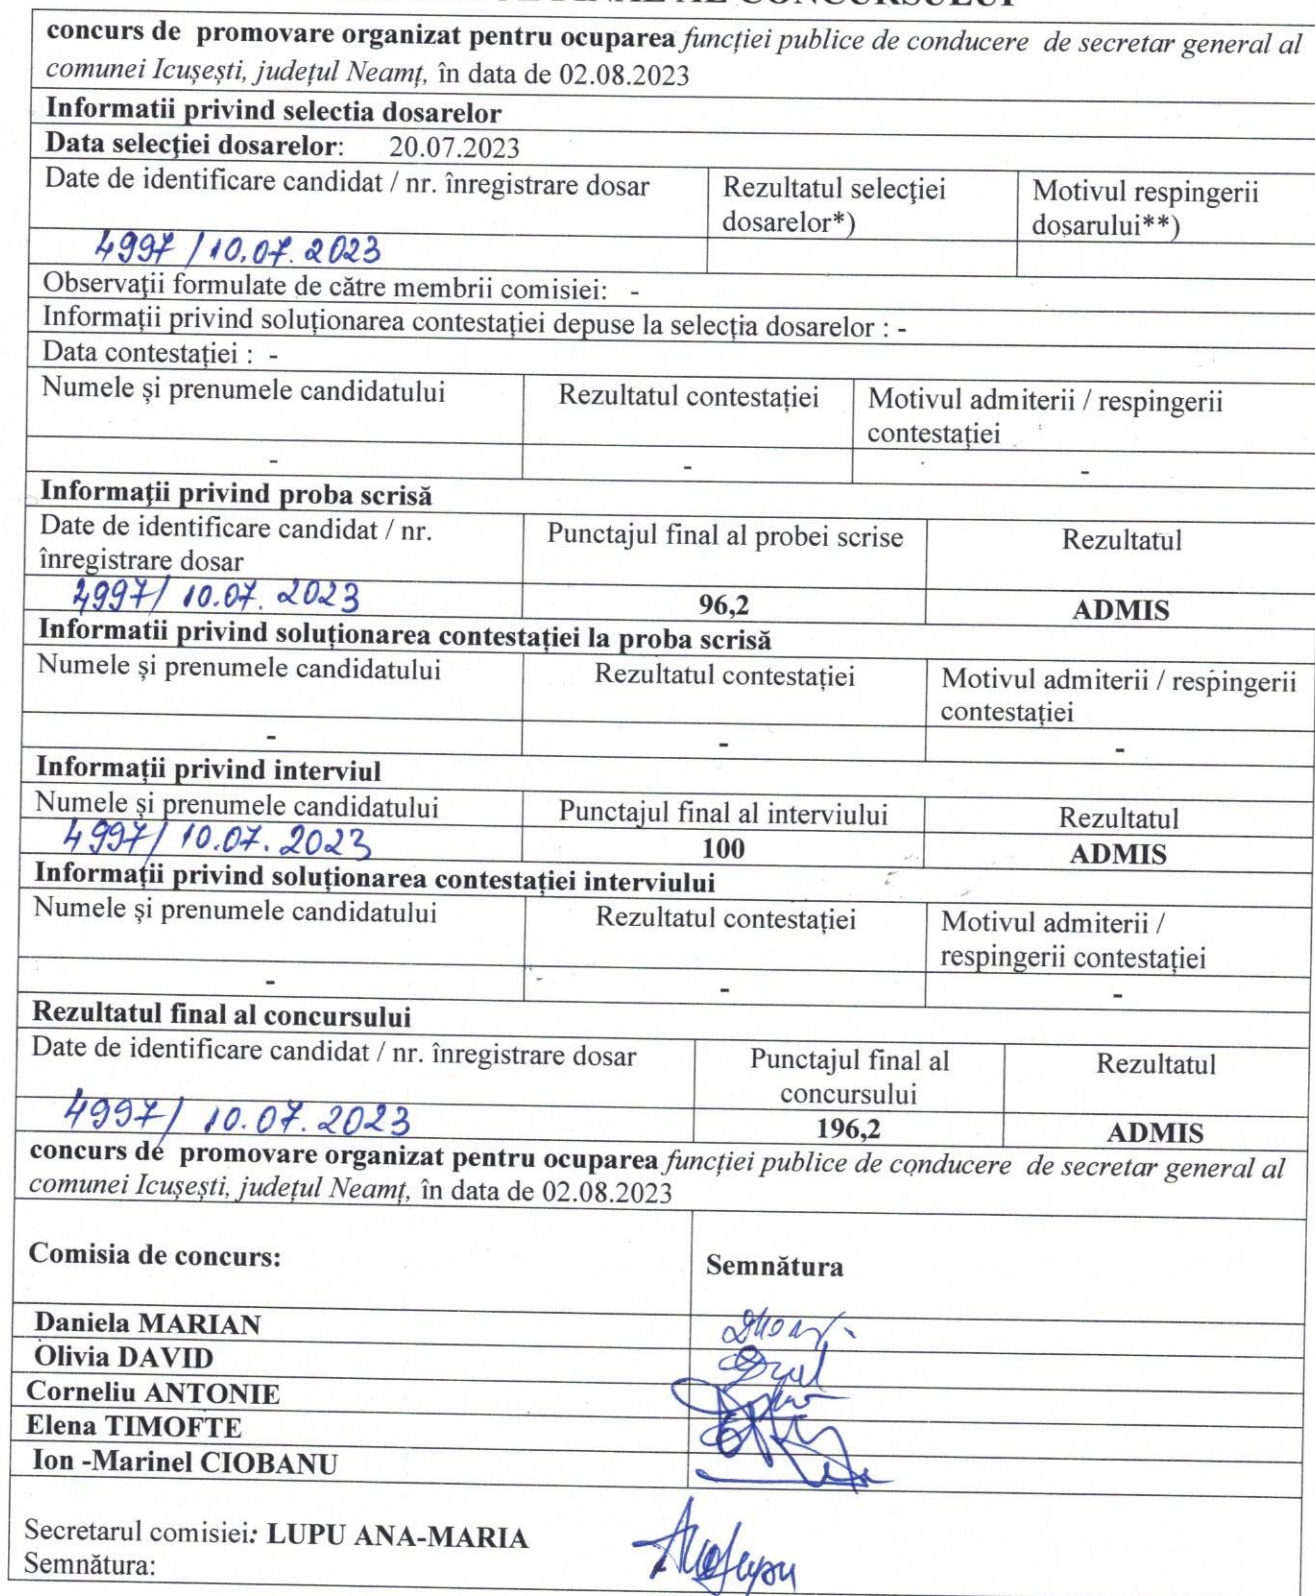 FINAL AL CONCURSULUI
concurs de promovare organizat pentru ocuparea funcției publice de conducere de secretar general al
comunei Icușești, județul Neamț, în data de 02.08.2023
Informatii privind selectia dosarelor
Data selecţiei dosarelor: 20.07.2023
Date de identificare candidat / nr. înregistrare dosar
Rezultatul selecţiei
dosarelor*)
Motivul respingerii
dosarului**)
4997 / 10.07.2023
Observaţii formulate de către membrii comisiei: -
Informații privind soluționarea contestației depuse la selecția dosarelor : -
Data contestației : -
Numele și prenumele candidatului
Rezultatul contestației
Motivul admiterii / respingerii
contestației
- - -
Informaţii privind proba scrisă
Date de identificare candidat / nr.
înregistrare dosar
Punctajul final al probei scrise
Rezultatul
4997/ 10.07.2023 96,2 ADMIS
Informatii privind soluționarea contestației la proba scrisă
Numele și prenumele candidatului
Rezultatul contestației
Motivul admiterii / respingerii
contestației
- - -
Informații privind interviul
Numele și prenumele candidatului Punctajul final al interviului Rezultatul
4997/ 10.07.2023 100 ADMIS
Informații privind soluționarea contestației interviului
Numele și prenumele candidatului
Rezultatul contestației
Motivul admiterii /
respingerii contestației
- - -
Rezultatul final al concursului
Date de identificare candidat / nr. înregistrare dosar
Punctajul final al
concursului
Rezultatul
4997/ 10.07.2023 196,2 ADMIS
concurs de promovare organizat pentru ocuparea funcției publice de conducere de secretar general al
comunei Icușești, județul Neamț, în data de 02.08.2023
Comisia de concurs: Semnătura
Daniela MARIAN
Olivia DAVID
Corneliu ANTONIE
Elena TIMOFTE
Ion -Marinel CIOBANU
Secretarul comisiei: LUPU ANA-MARIA
Semnătura: